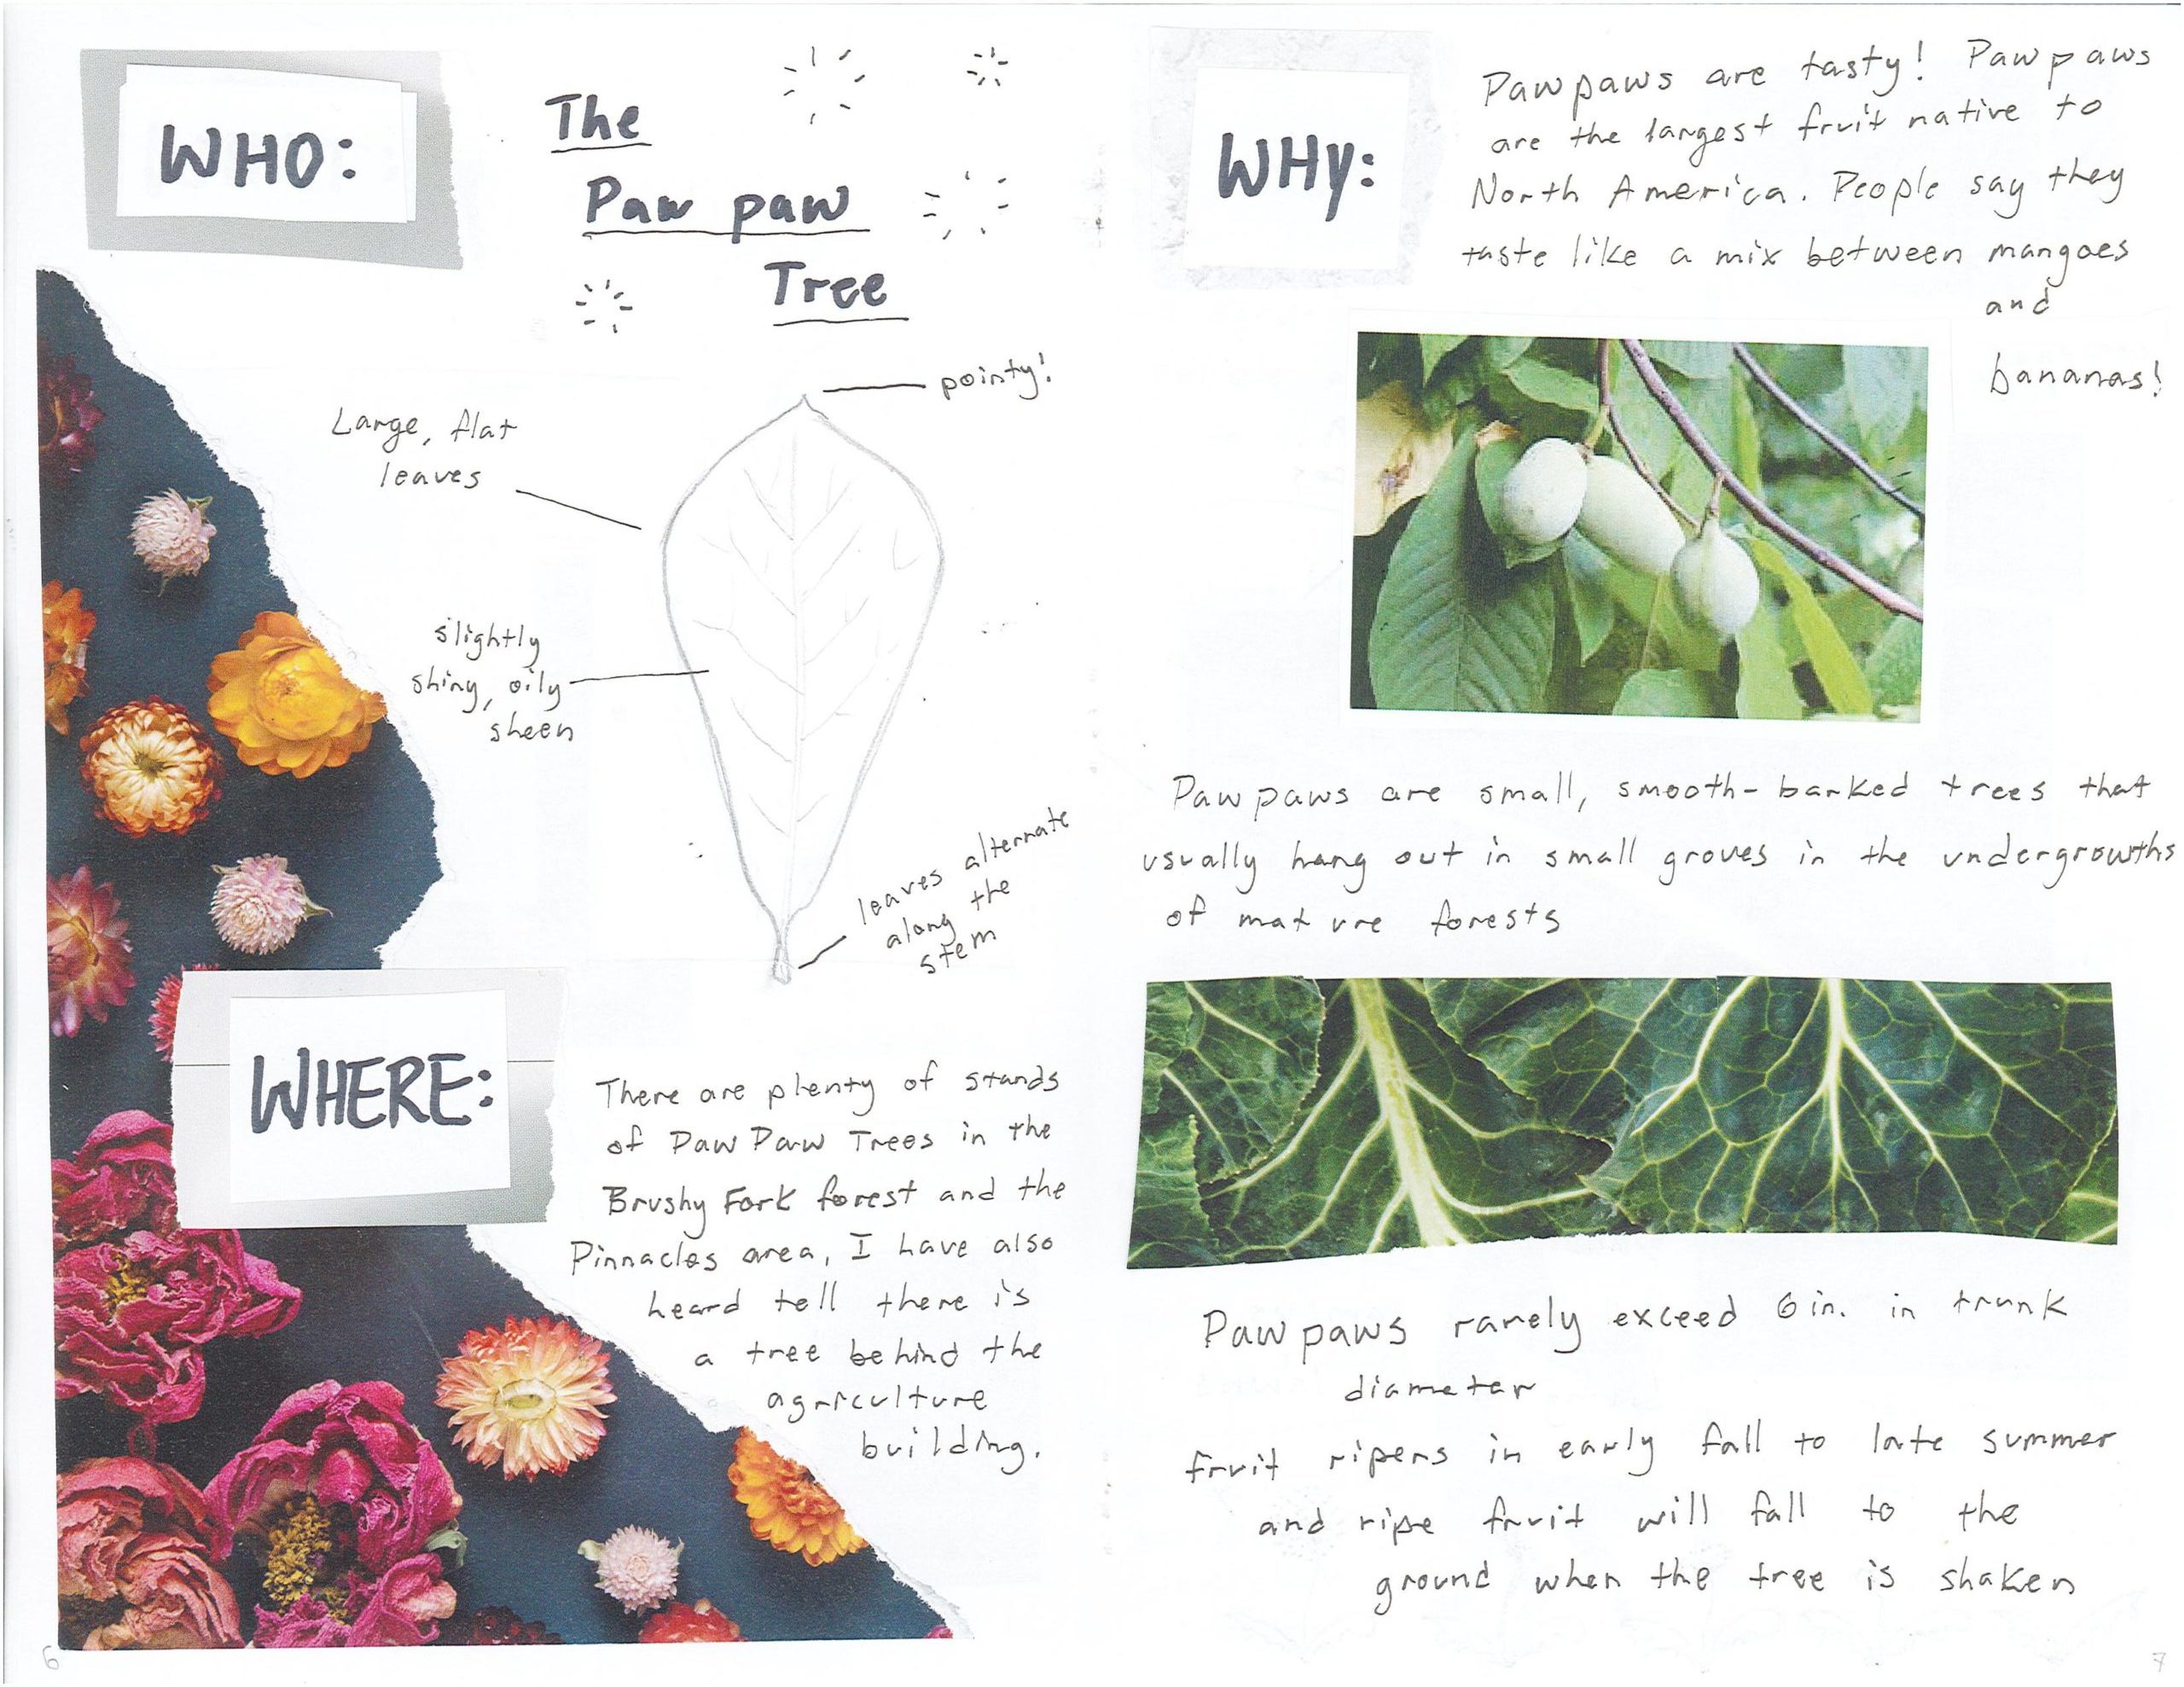 WHO:
The
Paw paw
Tree
pointy!
Large, flat
leaves
slightly
shiny, oily
sheen
leaves alternate
along the
stem
WHERE:
There are plenty of stands
of Paw Paw Trees in the
Brushy Fork forest and the
Pinnacles area, I have also
heard tell there is
a tree behind the
agriculture
building.
6
WHY:
Pawpaws are tasty! Pawpaws
are the largest fruit native to
North America. People say they
taste like a mix between mangoes
and
bananas!
Pawpaws are small, smooth-barked trees that
usually hang out in small groves in the undergrowths
of mature forests
Pawpaws rarely exceed 6 in. in trunk
diameter
fruit ripens in early fall to late summer
and ripe fruit will fall to the
ground when the tree is shaken
7